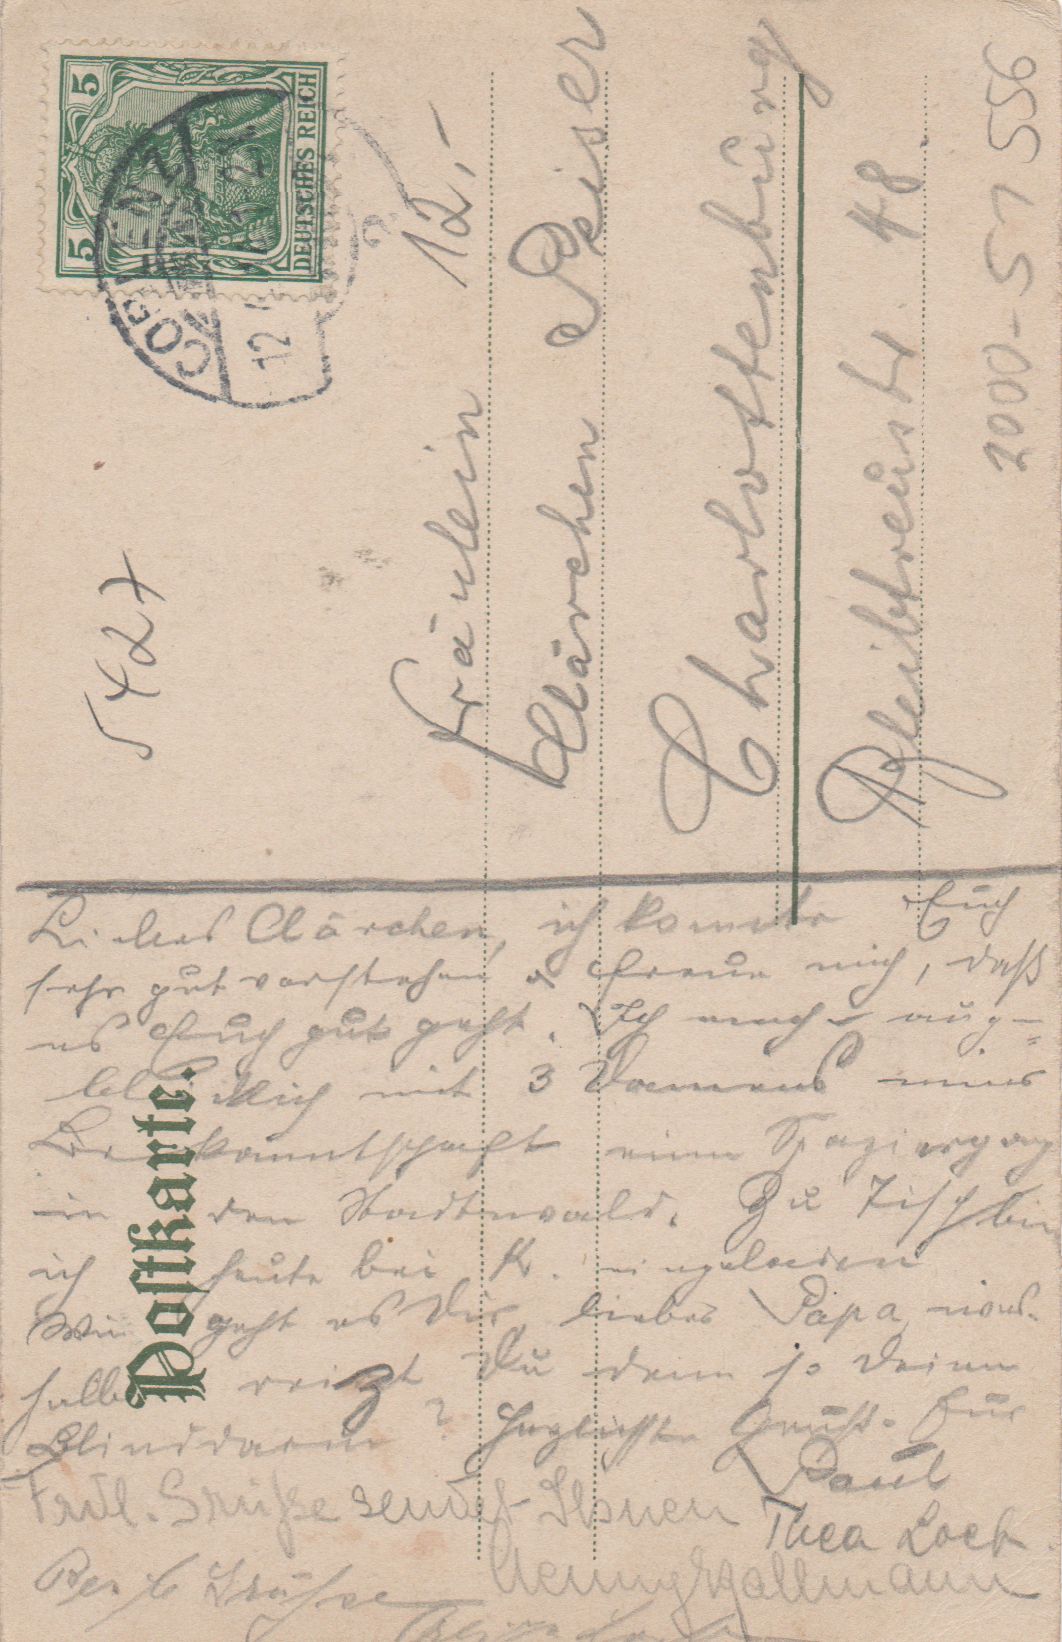 5
5
DEUTSCHES REICH
COBLENZ
12
12.-
542x
Fräulein
Clärchen Peiser
Charlottenburg
Bleibtreustr. 48.
2000-57 556
Postkarte.
Liebes Clärchen, ich konnte Euch
sehr gut verstehen & freue mich, daß
es Euch gut geht. Ich mache aug-
blicklich mit 3 Damens
Bekanntschaft einen Spaziergang
in den Stadtwald. Zu Tisch bin
ich heute bei K. eingeladen
Wie geht es Dir, lieber Papa, wes-
halb reizt Du denn so Deinen
Blinddarm? Herzlichste Grüße Euer
Paul
Frdl. Grüße sendet Ihnen Thea Loeb.
Grüße Hallmann